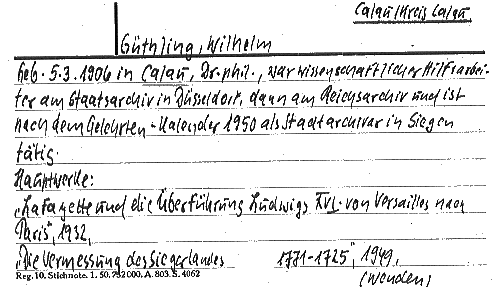 Calau/Kreis Calau
Güthling, Wilhelm
Geb. 5.3.1906 in Calau, Dr. phil., war wissenschaftlicher Hilfsarbei-
ter am Staatsarchiv in Düsseldorf, dann am Reichsarchiv und ist
nach dem Gelehrten-Kalender 1950 als Stadtarchivar in Siegen
tätig.
Hauptwerke:
„Lafayette und die Überführung Ludwigs XVI. von Versailles nach
Paris", 1932,
„Die Vermessung des Siegerlandes 1771-1725", 1949.
(Wenden)
Reg. 10. Stichnote. 1. 50. 252000. A. 803. S. 4062